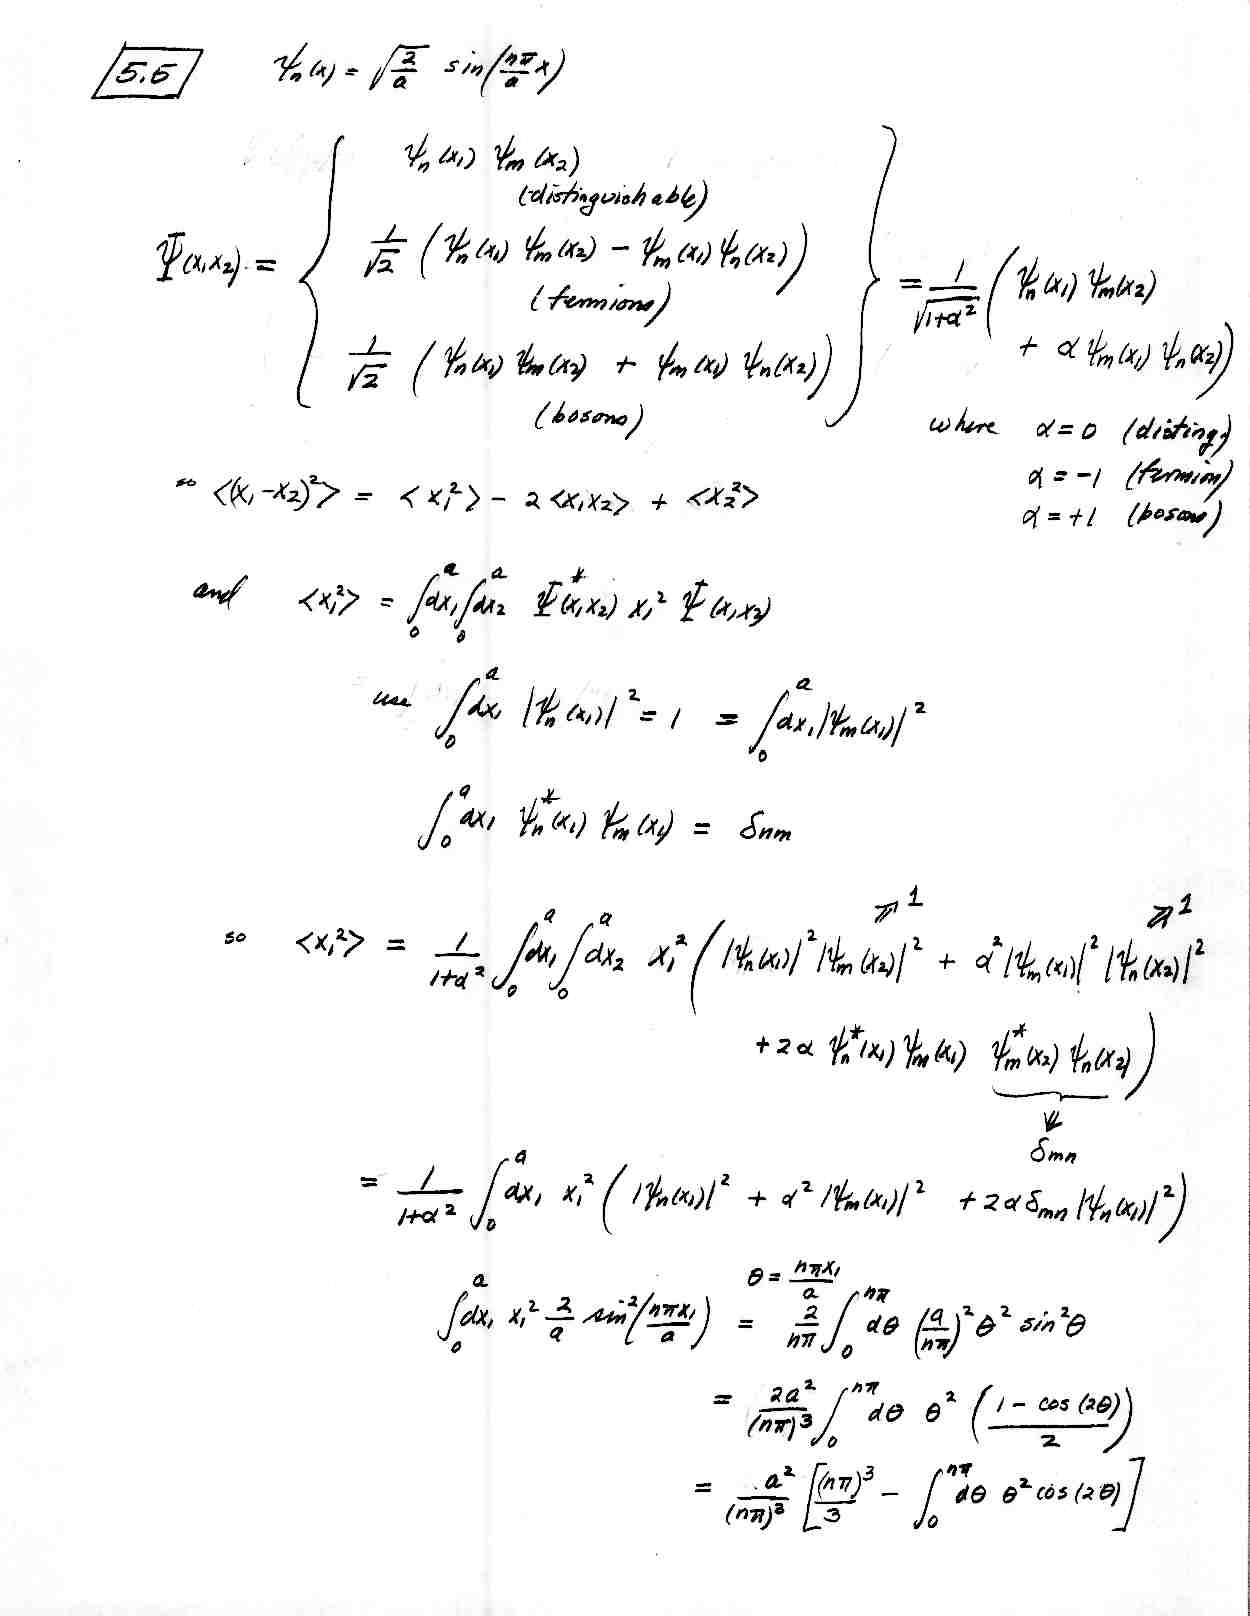 5.6 ψn(x) = √(2/a) sin(nπ/a x)
ψn(x1) ψm(x2)
(distinguishable)
Ψ(x1x2) = { 1/√2 (ψn(x1) ψm(x2) − ψm(x1) ψn(x2)) } = 1/√(1+α²) (ψn(x1) ψm(x2)
(fermions)
+ α ψm(x1) ψn(x2))
1/√2 (ψn(x1) ψm(x2) + ψm(x1) ψn(x2))
(bosons)
where α = 0 (disting.)
α = −1 (fermion)
α = +1 (bosons)
so <(x1−x2)²> = <x1²> − 2<x1x2> + <x2²>
and <x1²> = ∫0^a dx1 ∫0^a dx2 Ψ*(x1x2) x1² Ψ(x1x2)
use ∫0^a dx1 |ψn(x1)|² = 1 = ∫0^a dx1 |ψm(x1)|²
∫0^a dx1 ψn*(x1) ψm(x1) = δnm
so <x1²> = 1/(1+α²) ∫0^a dx1 ∫0^a dx2 x1² (|ψn(x1)|² |ψm(x2)|² ⇗1 + α² |ψm(x1)|² |ψn(x2)|² ⇗1
+ 2α ψn*(x1) ψm(x1) ψm*(x2) ψn(x2))
⇓
δmn
= 1/(1+α²) ∫0^a dx1 x1² (|ψn(x1)|² + α² |ψm(x1)|² + 2α δmn |ψn(x1)|²)
θ = nπx1/a
∫0^a dx1 x1² 2/a sin²(nπx1/a) = 2/nπ ∫0^nπ dθ (a/nπ)² θ² sin²θ
= 2a²/(nπ)³ ∫0^nπ dθ θ² ((1 − cos(2θ))/2)
= a²/(nπ)³ [(nπ)³/3 − ∫0^nπ dθ θ² cos(2θ)]